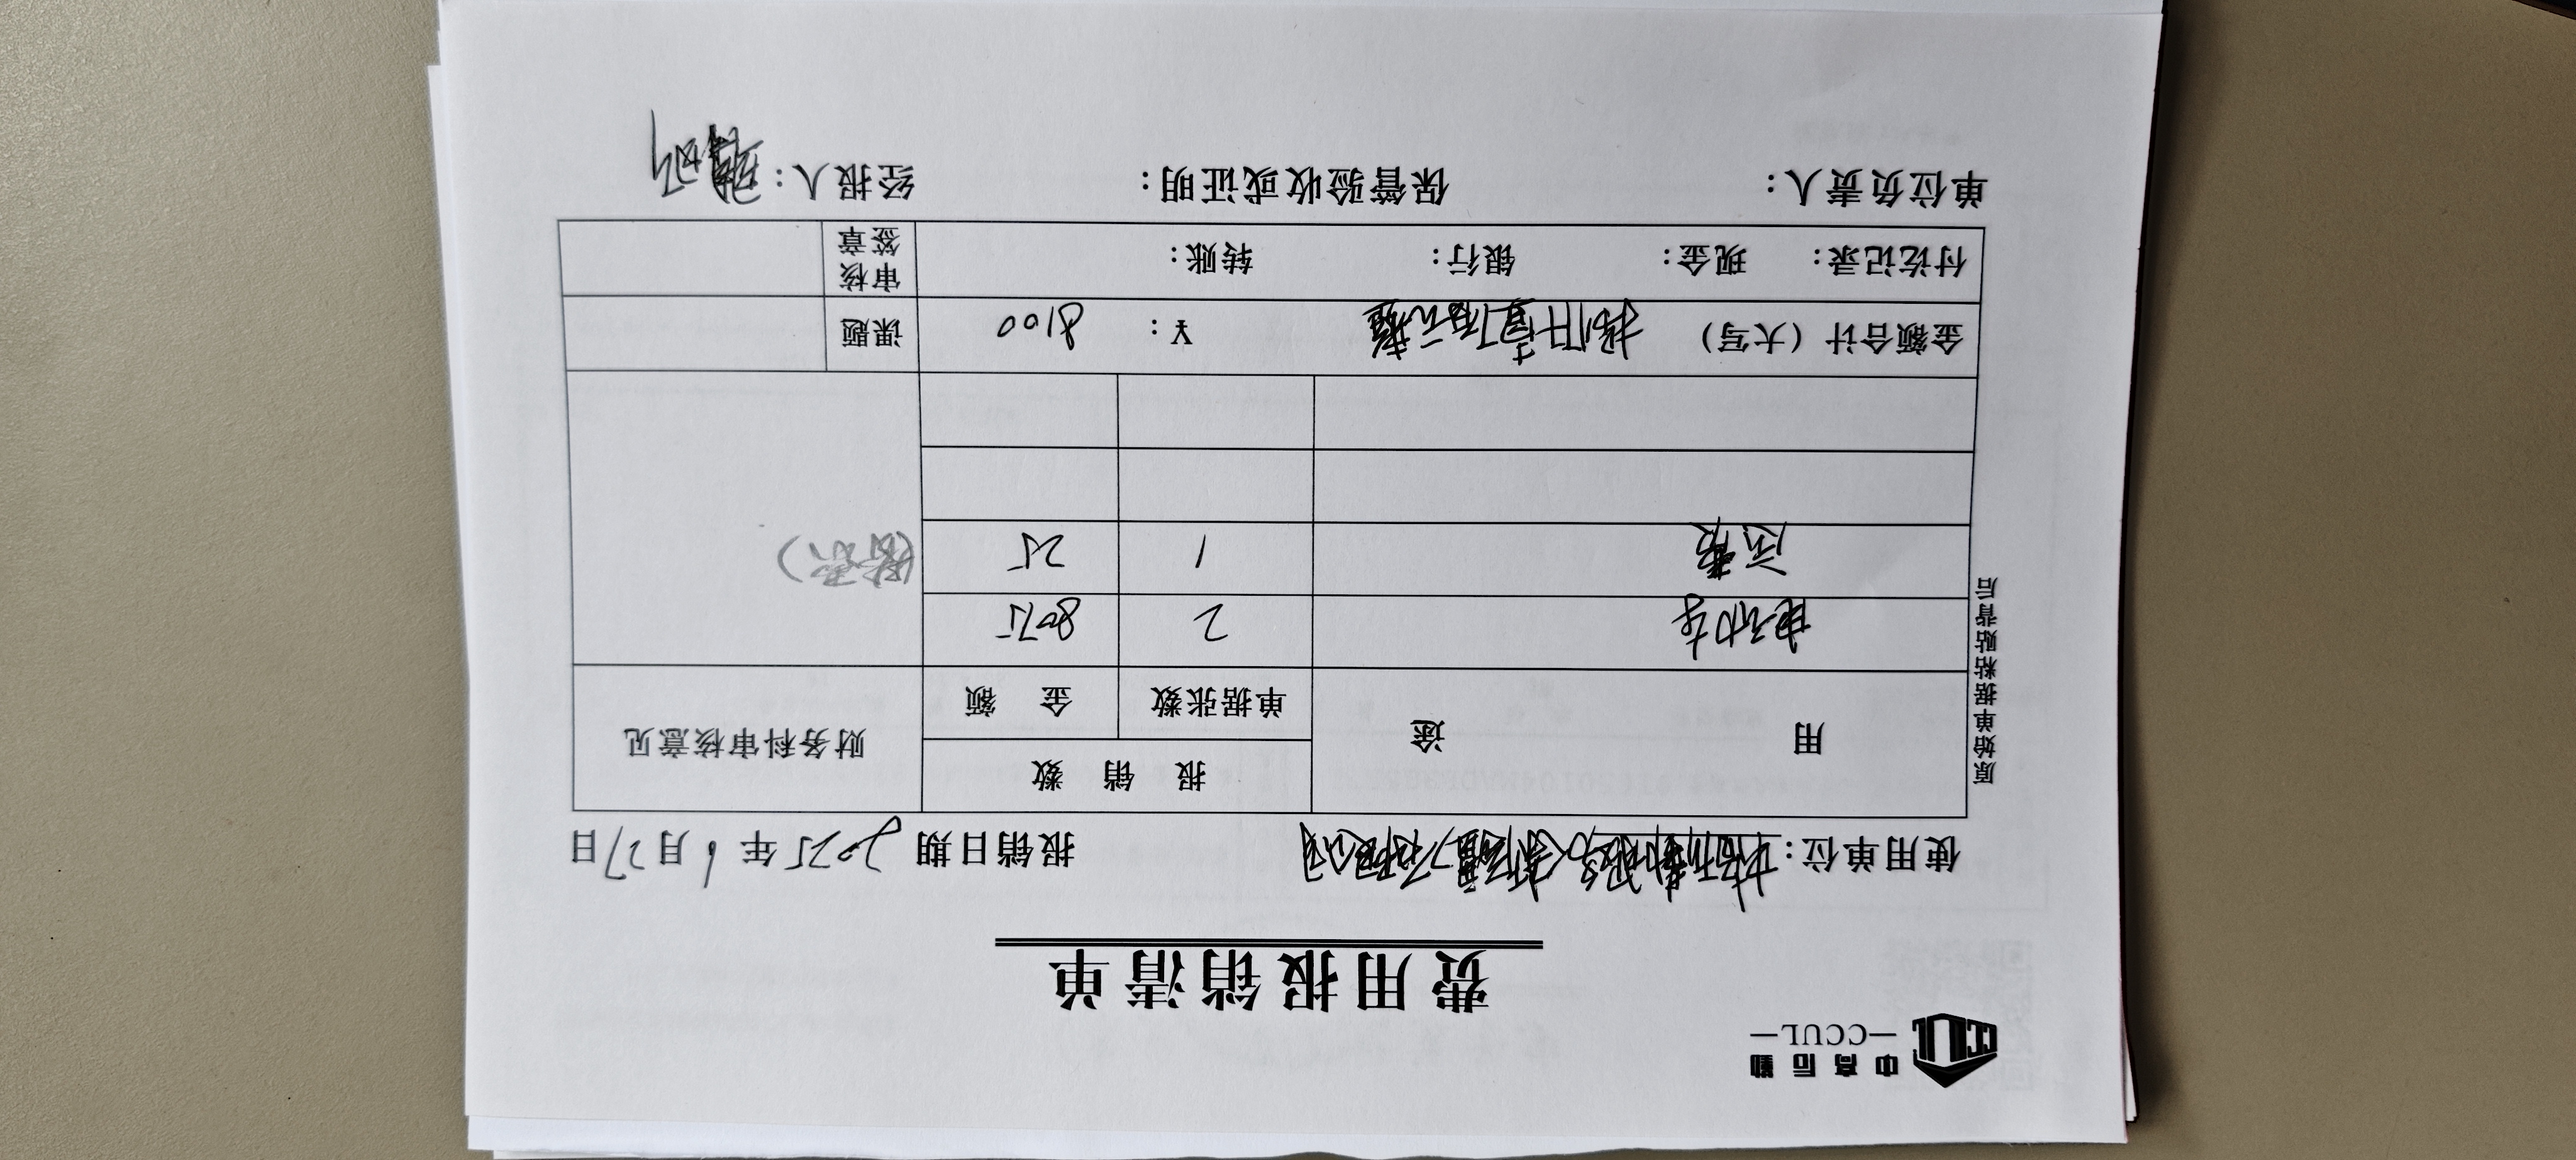 中高后勤
—CCUL—
费用报销清单
使用单位： 报销日期 2025年6月27日
用 途 报 销 数 财务科审核意见
单据张数 金 额
电动车 2 8075
运费 1 25
金额合计（大写） 捌仟壹佰元整 ￥： 8100 课题
付讫记录： 现金： 银行： 转账： 审核签章
单位负责人： 保管验收或证明： 经报人：
原始单据粘贴背后